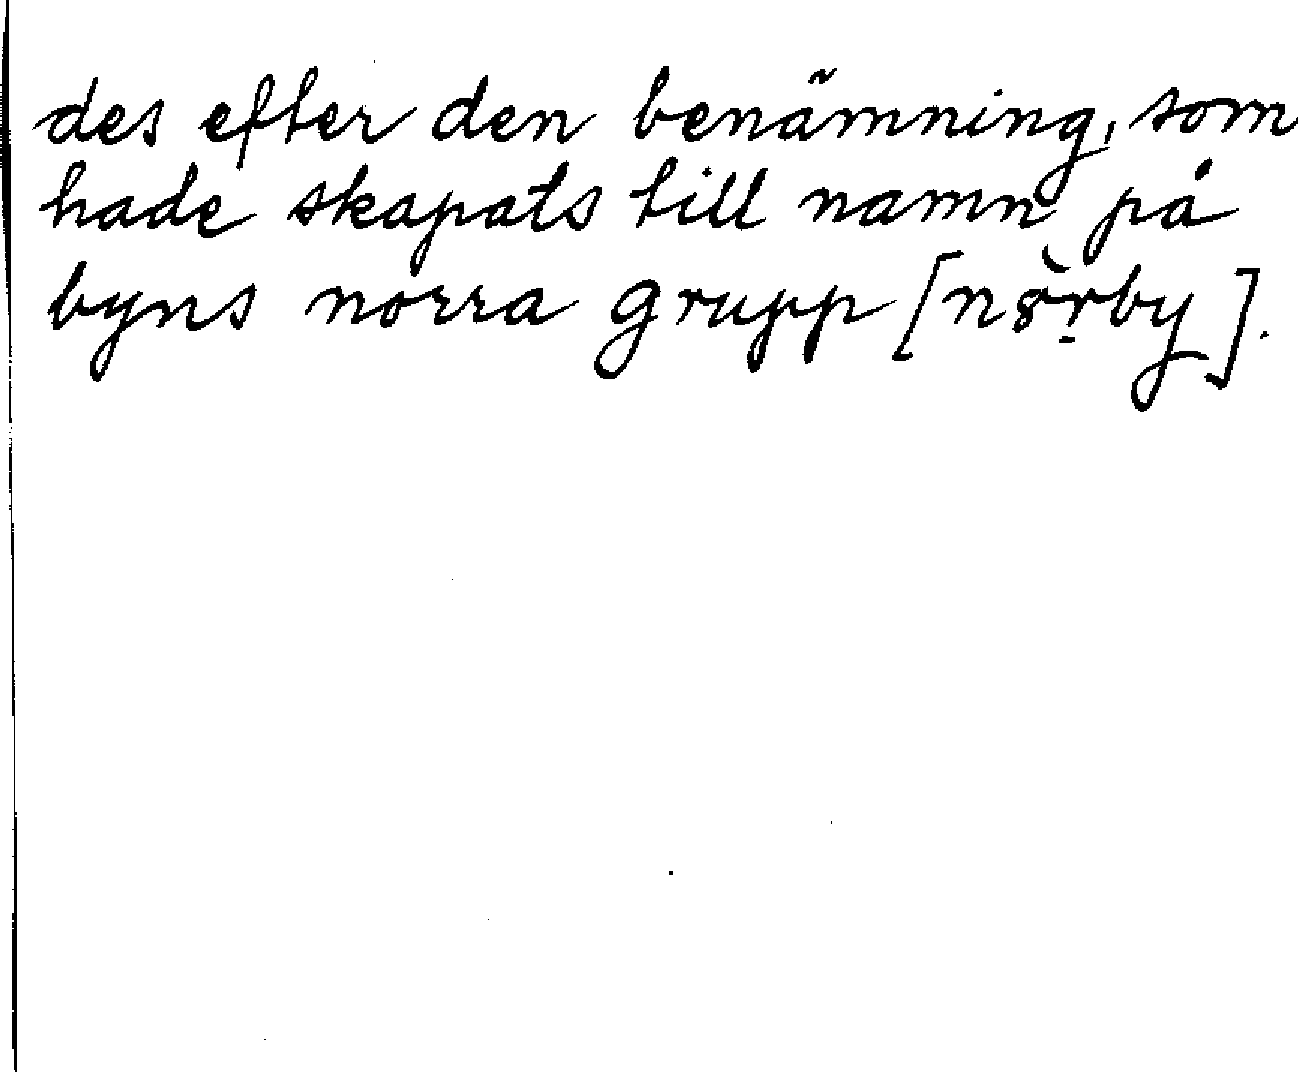 des efter den benämning, som
hade skapats till namn på
byns norra grupp [n8̀r̠by].